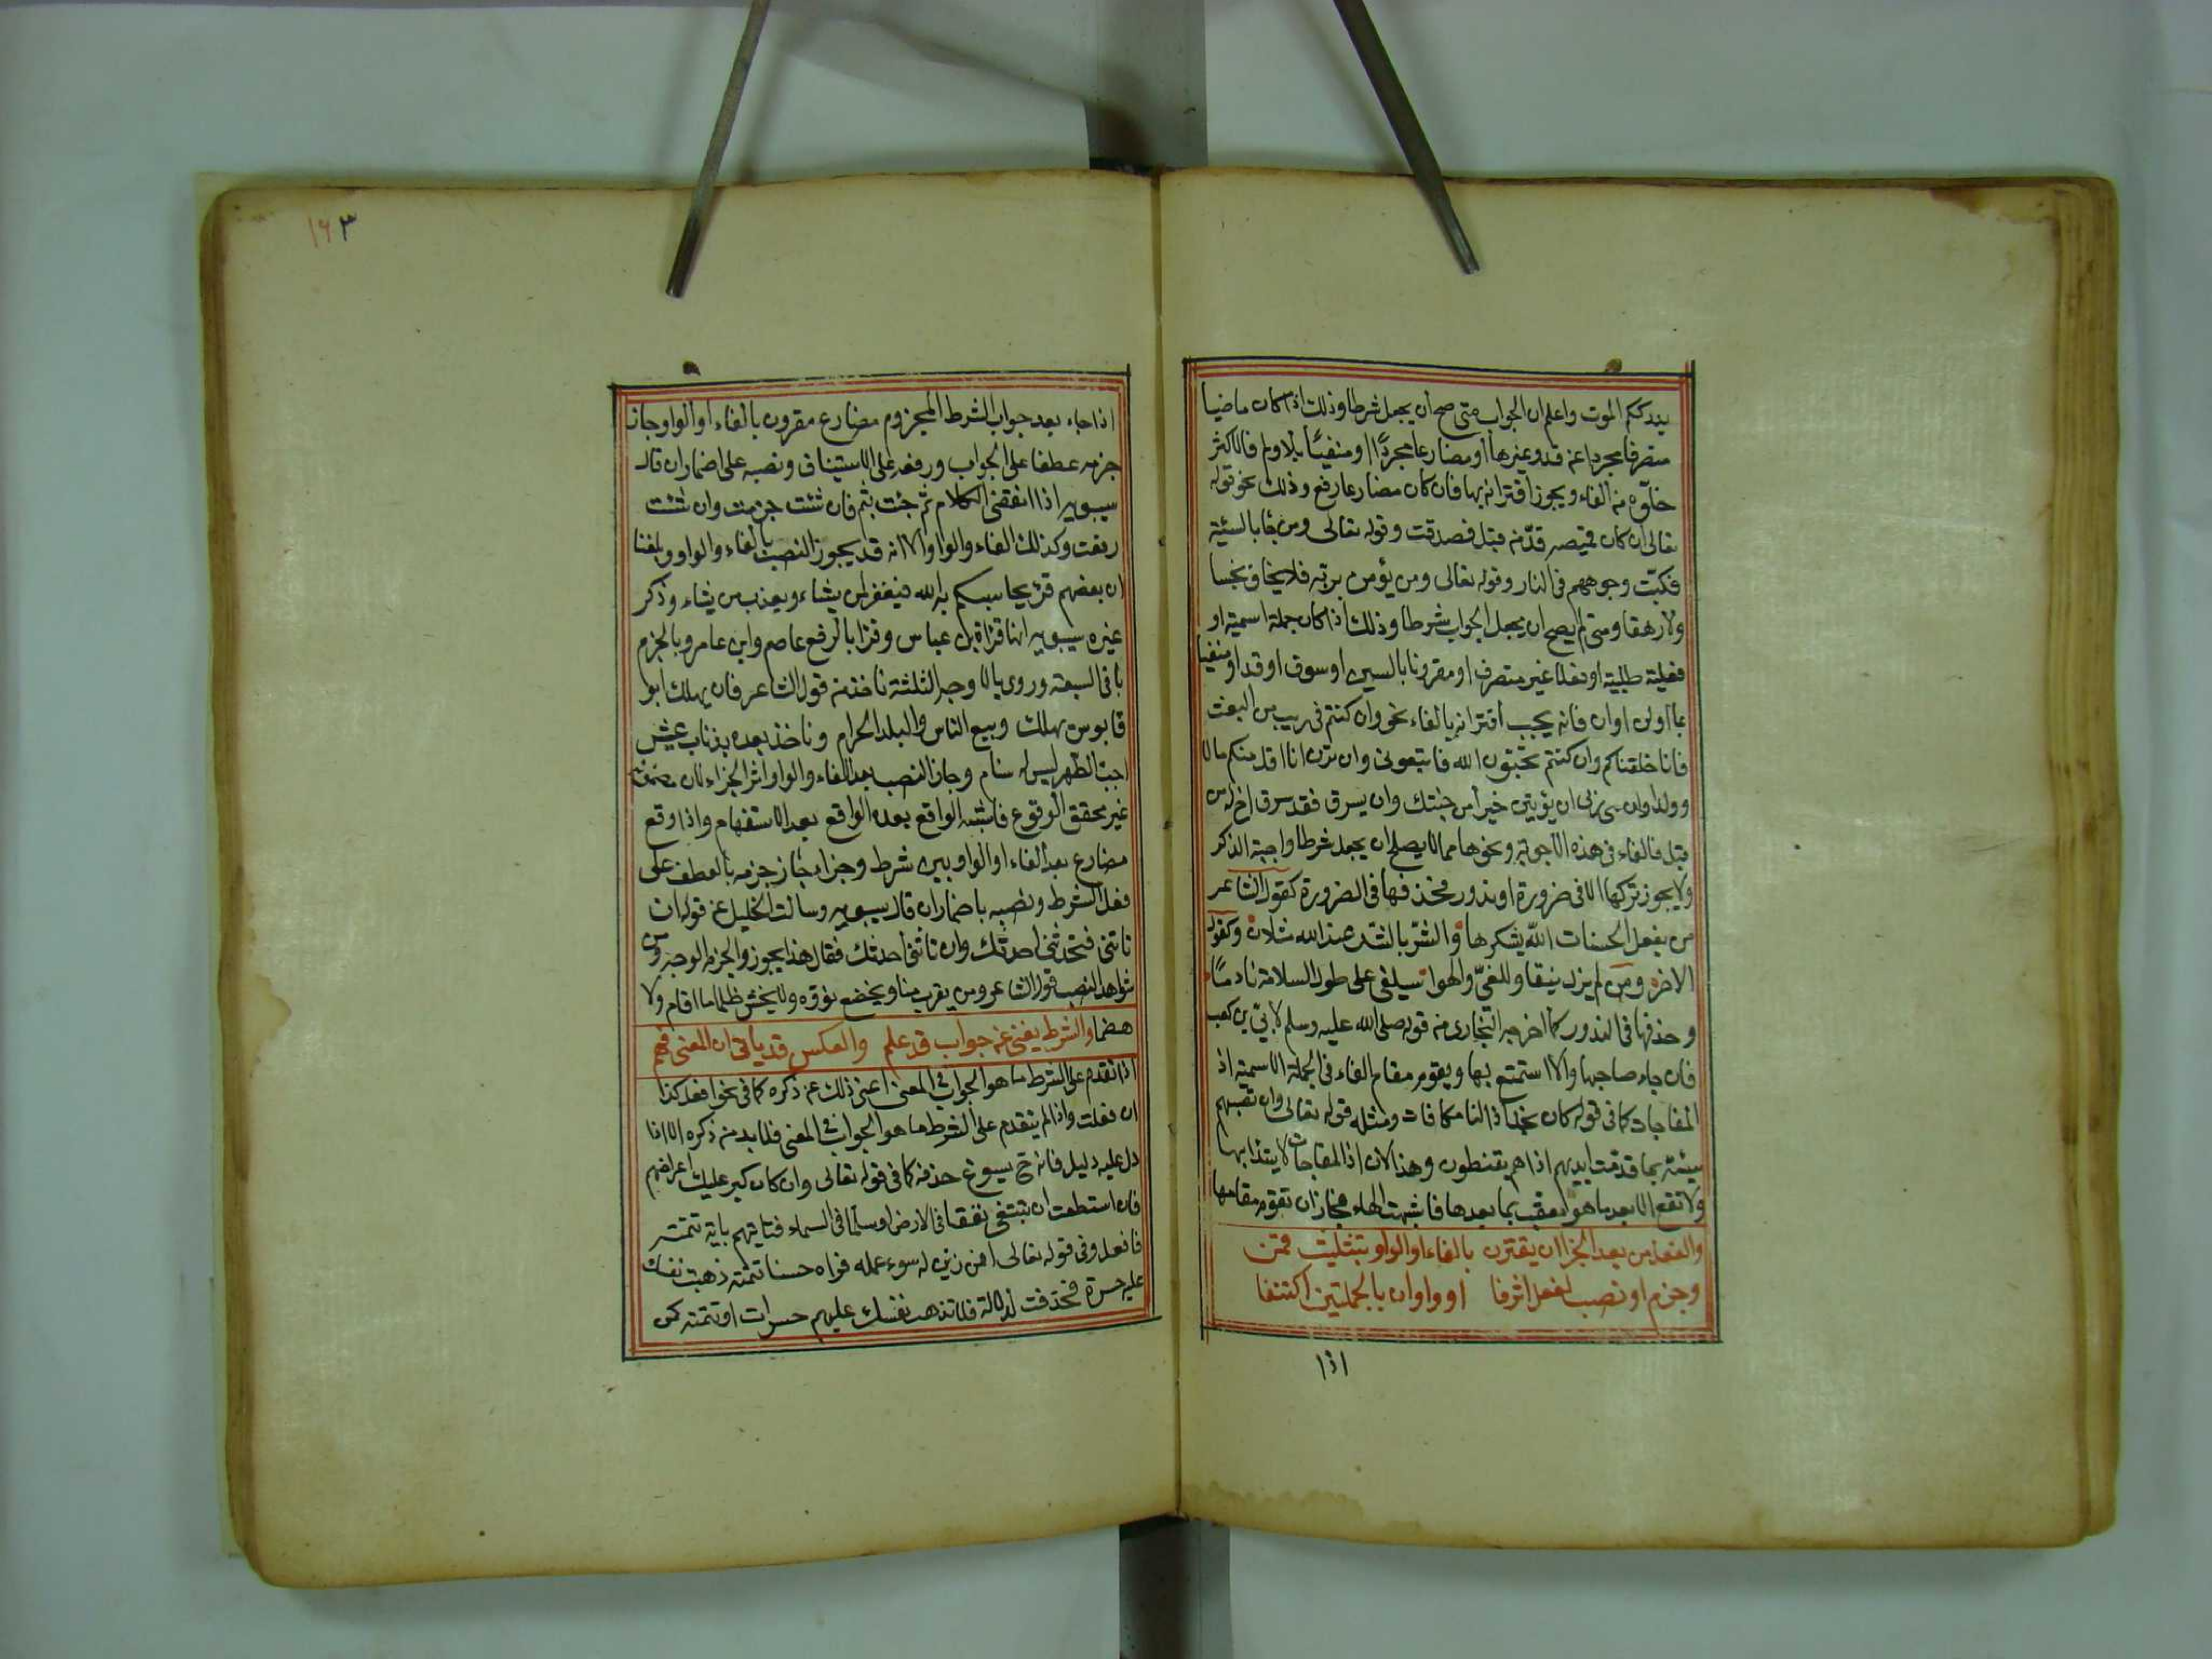 يدرككم الموت واعلم ان الجواب متى صح ان يجعل شرطا وذلك اذا كان ماضيا
متصرفا مجردا عن قد وغيرها او مضارعا مجردًا او منفيًا بلا ولم فالاكثر
خلوّه من الفاء ويجوز اقترانه بها فان كان مضارعا رفع وذلك نحو قوله
تعالى ان كان قميصه قدّ من قبل فصدقت وقوله تعالى ومن جا بالسيئة
فكبّت وجوههم في النار وقوله تعالى ومن يؤمن بربه فلا يخاف بخسا
ولا رهقا ومتى لم يصح ان يجعل الجواب شرطا وذلك اذا كان جملة اسمية او
فعلية طلبية او فعلا غير متصرف او مقرونا بالسين او سوف او قد او منفيا
بما او لن او ان فانه يجب اقترانه بالفاء نحو وان كنتم في ريب من البعث
فانا خلقناكم وان كنتم تحبّون الله فاتبعوني وان ترن انا اقل منكم مالا
وولدا وان ربي ان يؤتين خيرا من جنتك وان يسرق فقد سرق اخ له من
قبل فالفاء في هذه الاجوبة ونحوها مما لا يصلح ان يجعل شرطا واجبة الذكر
ولا يجوز تركها الا في ضرورة او ندور فحذفها في الضرورة كقول الشاعر
من يفعل الحسنات الله يشكرها والشرّ بالشر عند الله مثلان وكقول
الاخر ومن لم يزل ينقاد للغيّ والهوا سيلفى على طول السلامة نادمًا
وحذفها في الندور كما اخرجه البخارى من قوله صلى الله عليه وسلم لابيّ بن كعب
فان جاء صاحبها والا استمتع بها ويقوم مقام الفاء في الجملة الاسمية اذ
المفاجات كما في قوله كان تجد اذا لنا مكافات ومثله قوله تعالى وان تصبهم
سيئة بما قدمت ايديهم اذا هم يقنطون وهذا لان اذا المفاجات لا يبتدا بها
ولا تقع الا بعد ما هو معقب بما بعدها فاشبهت الفاء فجاز ان تقوم مقامها
والفعل من بعد الجزا ان يقترن بالفاء او الواو بتثليث قمن
وجزم او نصب لفعل اثر فا او واو ان بالجملتين اكتنفا
اذا
١٦٣
اذا جاء بعد جواب الشرط المجزوم مضارع مقرون بالفاء او الواو جاز
جزمه عطفا على الجواب ورفعه على الاستيناف ونصبه على اضمار ان قال
سيبويه اذا انقضى الكلام ثم جئت بثم فان شئت جزمت وان شئت
رفعت وكذلك الفاء والواو الا انه قد يجوز النصب بالفاء والواو وبلغنا
ان بعضهم قرئ يحاسبكم به الله فيغفر لمن يشاء ويعذب من يشاء وذكر
غيره سيبويه انها قراة ابن عباس وقرا بالرفع عاصم وابن عامر وبالجزم
باقي السبعة وروى بالاوجه الثلثة ناخذ من قول الشاعر فان يهلك ابو
قابوس يهلك وبيع الناس والبلد الحرام وناخذ بعده بذناب عيش
اجب الظهر ليس له سنام وجاز النصب بعد الفاء والواو اثر الجزاء لان مضمونه
غير محقق الوقوع فاشبه الواقع بعده الواقع بعد الاستفهام واذا وقع
مضارع بعد الفاء او الواو بين شرط وجزاء جاز جزمه بالعطف على
فعل الشرط ونصبه باضمار ان قال سيبويه وسالت الخليل عن قوله ان
تاتني فتحدثني احدثك وان تاتني احدثك فقال هذا يجوز والجزم الوجه ومن
شواهد النصب قول الشاعر ومن يقرب منا ويخضع نؤوه ولا يخش ظلما ما اقام ولا
هضما والشرط يغني عن جواب قد علم والعكس قد ياتي ان المعنى فهم
اذا تقدم على الشرط ما هو الجواب في المعنى اغنى ذلك عن ذكره كما في نحو افعل كذا
ان فعلت واذا لم يتقدم على الشرط ما هو الجواب في المعنى فلا بد من ذكره الا اذا
دل عليه دليل فانه ح يسوغ حذفه كما في قوله تعالى وان كان كبر عليك اعراضهم
فان استطعت ان تبتغي نفقا في الارض او سلّما في السماء فتاتيهم باية تتمته
فافعل وفي قوله تعالى افمن زين له سوء عمله فراه حسنا تتمته ذهبت نفسك
عليه حسرة فحذفت لدلالة فلا تذهب نفسك عليهم حسرات او تتمته كمن